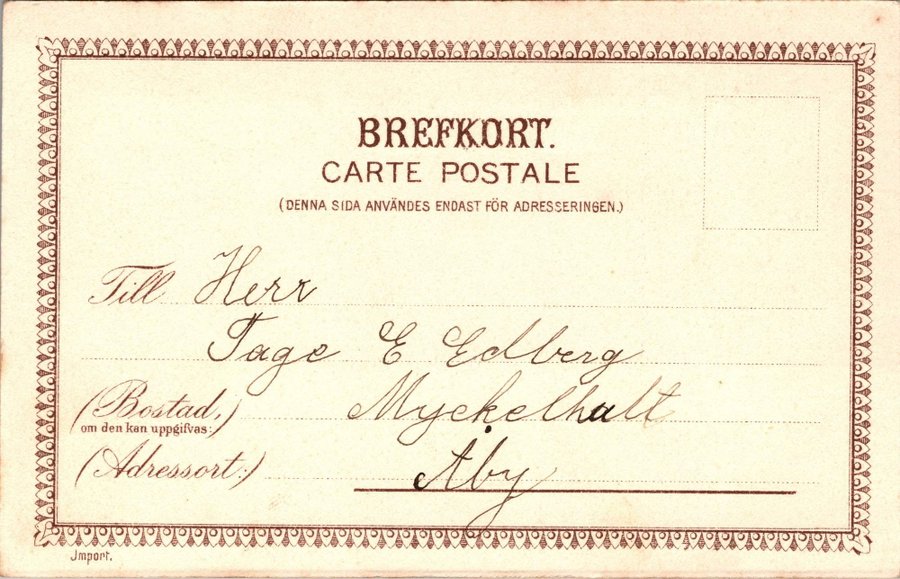 BREFKORT.
CARTE POSTALE
(DENNA SIDA ANVÄNDES ENDAST FÖR ADRESSERINGEN.)
Till Herr
Tage E Edberg
(Bostad,) Myckelhult
om den kan uppgifvas:
(Adressort:) Åby
Import.